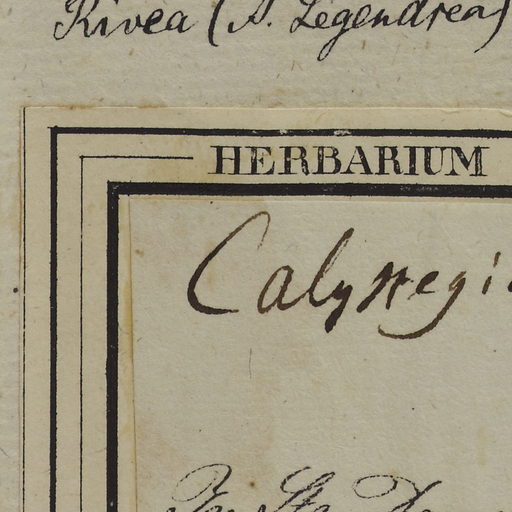 Rivea (A. Legendrea)
HERBARIUM
Calystegi